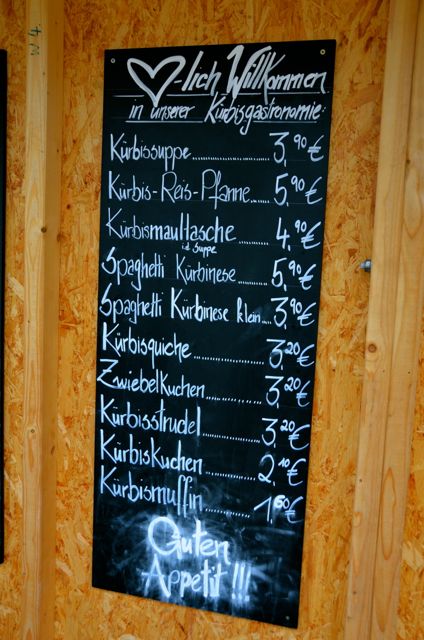 W4
♥-lich Willkommen
in unserer Kürbisgastronomie:
Kürbissuppe............3,90€
Kürbis-Reis-Pfanne......5,90€
Kürbismaultasche.......4,90€
i.d. Suppe
Spaghetti Kürbinese.......5,90€
Spaghetti Kürbinese klein....3,90€
Kürbisquiche.............3,20€
Zwiebelkuchen..........3,20€
Kürbisstrudel............3,20€
Kürbiskuchen...........2,10€
Kürbismuffin...........1,60€
Guten
Appetit!!!